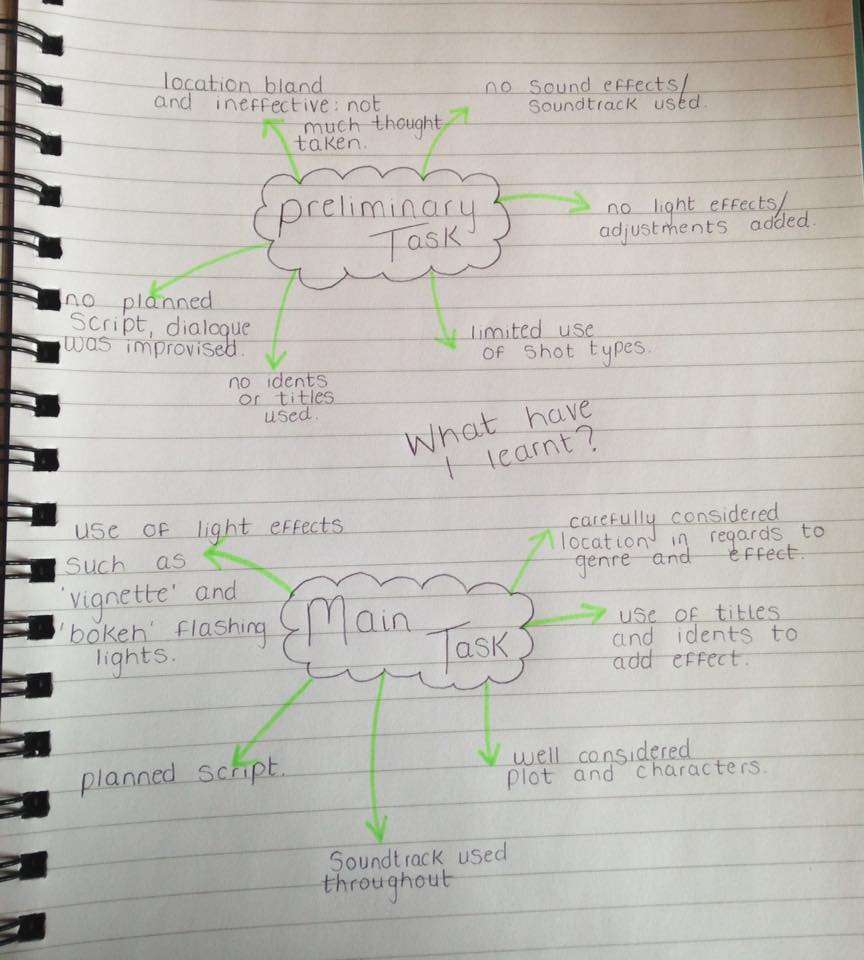 location bland
and ineffective: not
much thought
taken.
no sound effects/
soundtrack used.
preliminary
Task
no light effects/
adjustments added.
no planned
script, dialogue
was improvised.
no idents
or titles
used.
limited use
of shot types.
What have
I learnt?
use of light effects
such as
'vignette' and
'bokeh' flashing
lights.
carefully considered
location in regards to
genre and effect.
Main
Task
use of titles
and idents to
add effect.
planned script.
well considered
plot and characters.
Soundtrack used
throughout